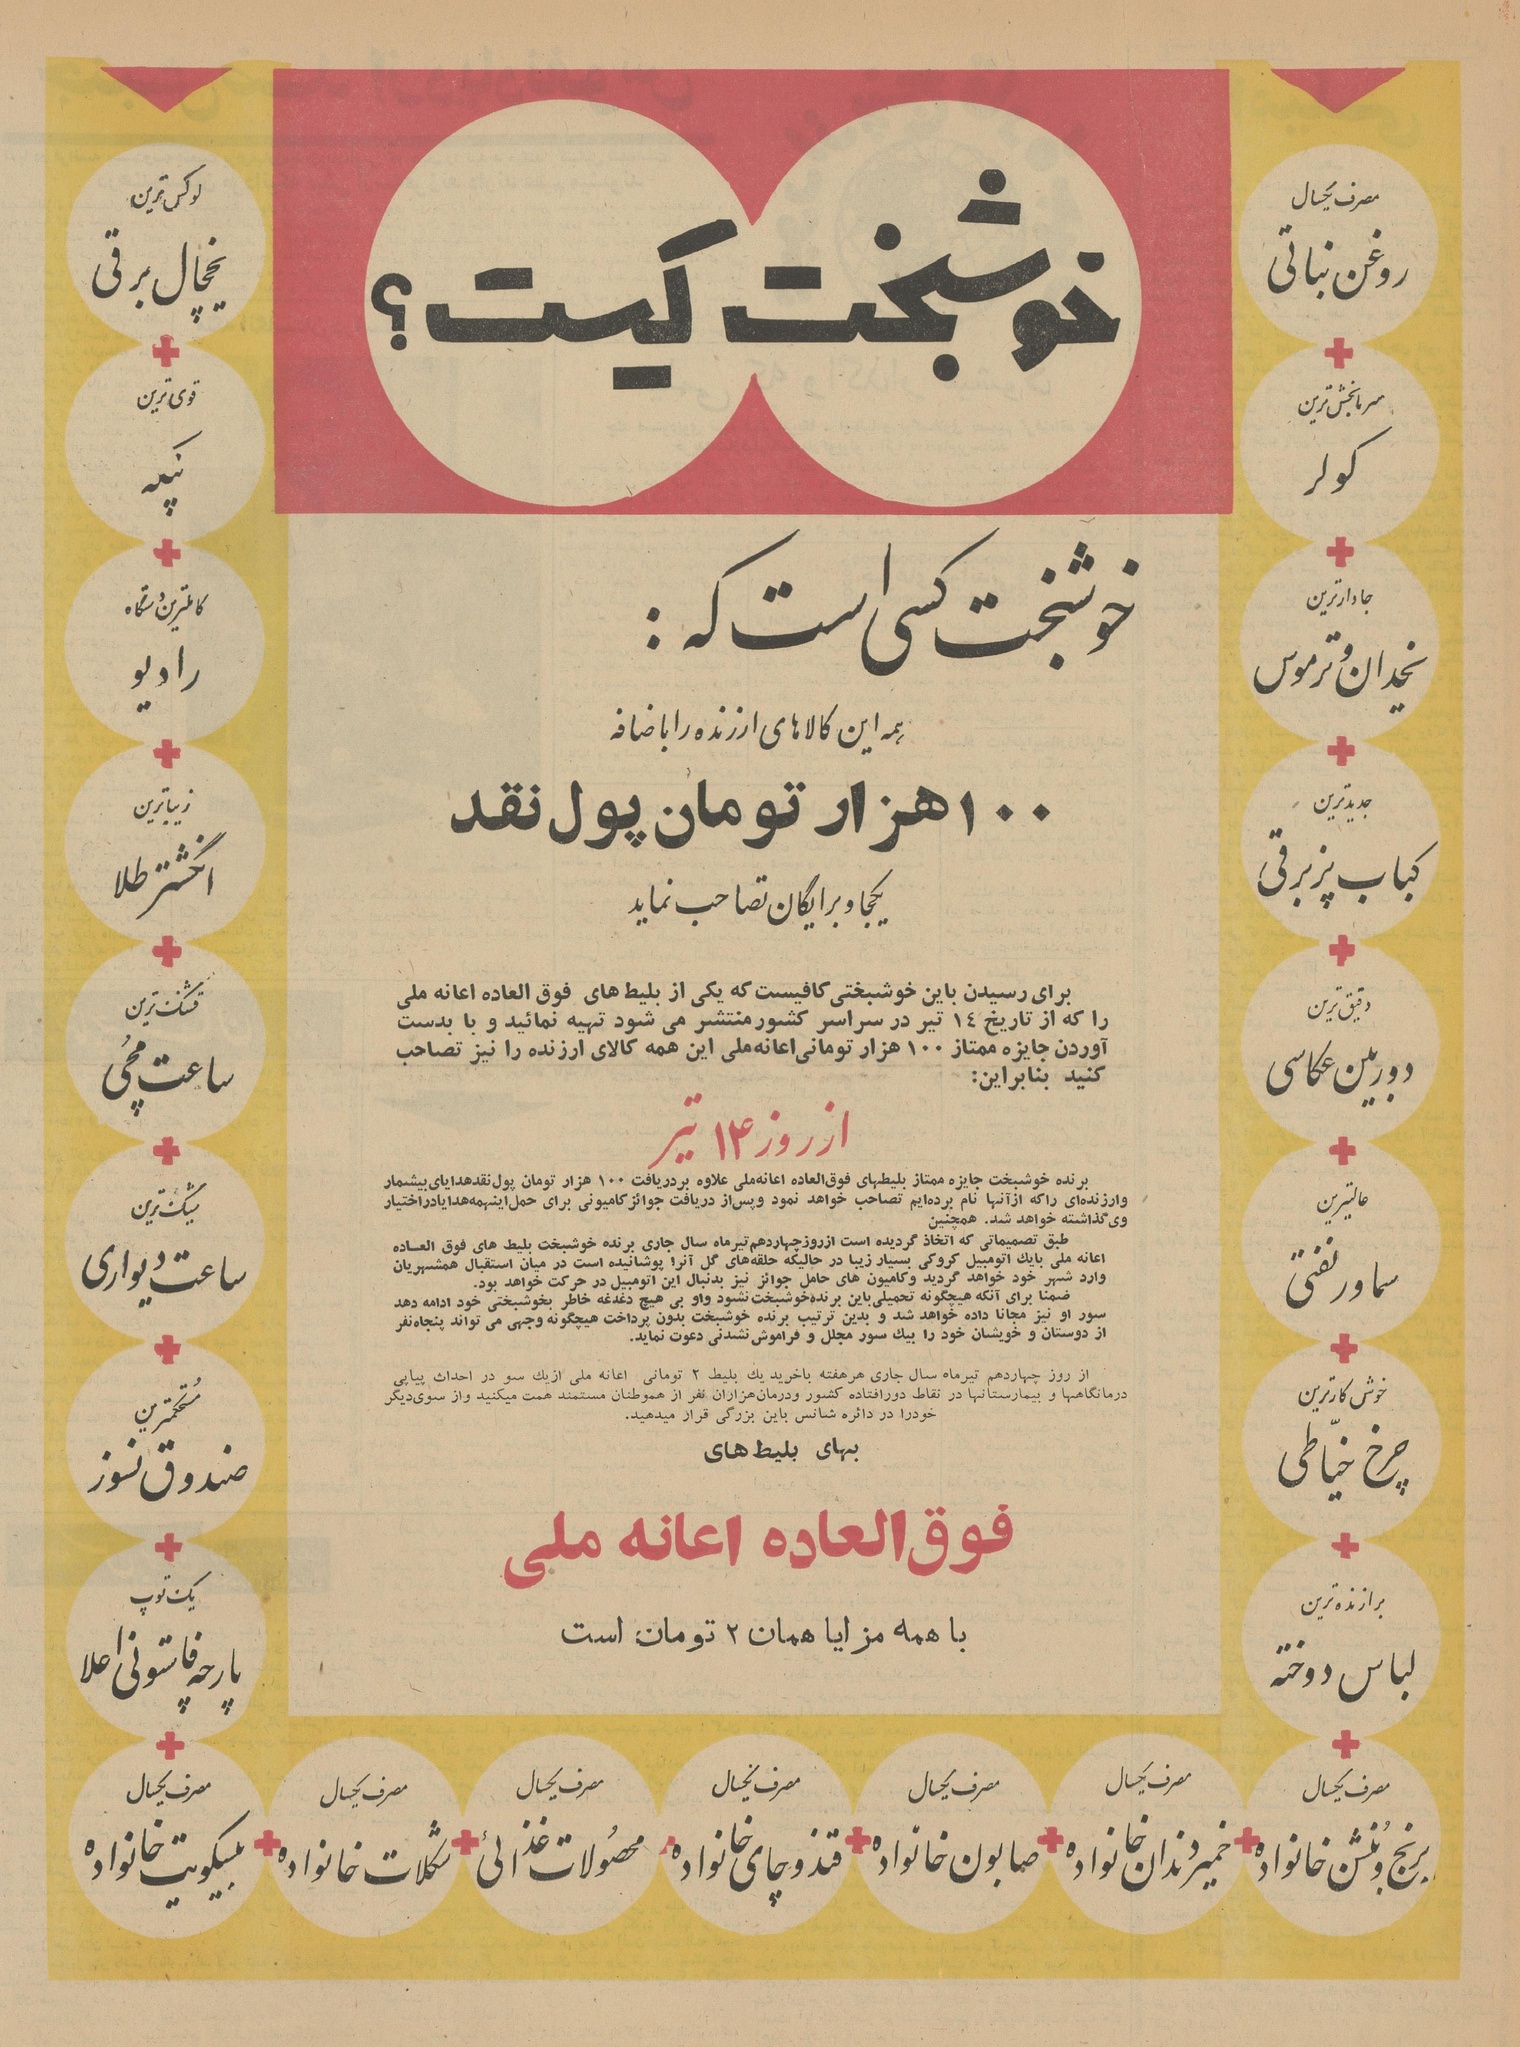 خوشبخت کیست؟
خوشبخت کسی است که :
همه این کالاهای ارزنده را باضافه
۱۰۰ هزار تومان پول نقد
یکجا و برایگان تصاحب نماید
برای رسیدن باین خوشبختی کافیست که یکی از بلیط های فوق العاده اعانه ملی
را که از تاریخ ۱۴ تیر در سراسر کشور منتشر می شود تهیه نمائید و با بدست
آوردن جایزه ممتاز ۱۰۰ هزار تومانی اعانه ملی این همه کالای ارزنده را نیز تصاحب
کنید بنابراین:
از روز ۱۴ تیر
برنده خوشبخت جایزه ممتاز بلیطهای فوق‌العاده اعانه‌ملی علاوه بردریافت ۱۰۰ هزار تومان پول نقدهدایای بیشمار
وارزنده‌ای راکه ازآنها نام برده‌ایم تصاحب خواهد نمود وپس‌از دریافت جوائز کامیونی برای حمل‌اینهمه‌هدایادراختیار
وی‌گذاشته خواهد شد. همچنین
طبق تصمیماتی که اتخاذ گردیده است ازروزچهاردهم‌تیرماه سال جاری برنده خوشبخت بلیط های فوق العـاده
اعانه ملی بایك اتومبیل کروکی بسیار زیبا در حالیکه حلقه‌های گل آنرا پوشانیده است در میان استقبال همشهریان
وارد شهر خود خواهد گردید وکامیون های حامل جوائز نیز بدنبال این اتومبیل در حرکت خواهد بود.
ضمنا برای آنکه هیچگونه تحمیلی‌باین برنده‌خوشبخت‌نشود واو بی هیچ دغدغه خاطر بخوشبختی خود ادامه دهد
سور او نیز مجانا داده خواهد شد و بدین ترتیب برنده خوشبخت بدون پرداخت هیچگونه وجهی می تواند پنجاه‌نفر
از دوستان و خویشان خود را بیك سور مجلل و فراموش‌نشدنی دعوت نماید.
از روز چهاردهم تیرماه سال جاری هرهفته باخرید یك بلیط ۲ تومانی اعانه ملی ازیك سو در احداث پیاپی
درمانگاهها و بیمارستانها در نقاط دورافتاده کشور ودرمان‌هزاران نفر از هموطنان مستمند همت میکنید واز سوی‌دیگر
خودرا در دائره شانس باین بزرگی قرار میدهید.
بهای بلیط‌های
فوق‌العاده اعانه ملی
با همه مزایا همان ۲ تومان است
مصرف یکسال
روغن نباتی
سرمابخش‌ترین
کولر
جادارترین
یخدان و ترموس
جدیدترین
کباب پز برقی
دقیق‌ترین
دوربین عکاسی
عالیترین
سماور نفتی
خوش کارترین
چرخ خیّاطی
برازنده‌ترین
لباس دوخته
لوکس‌ترین
یخچال برقی
قوی‌ترین
پنکه
کاملترین دستگاه
رادیو
زیباترین
انگشتر طلا
قشنگ‌ترین
ساعت مچی
شیک‌ترین
ساعت دیواری
مُستحکمترین
صندوق نسوز
یک توپ
پارچه فاستونی اعلا
مصرف یکسال
برنج و بُنشن خانواده
مصرف یکسال
خمیر دندان خانواده
مصرف یکسال
صابون خانواده
مصرف یکسال
قند و چای خانواده
مصرف یکسال
محصولات غذائی
مصرف یکسال
شکلات خانواده
مصرف یکسال
بیسکویت خانواده